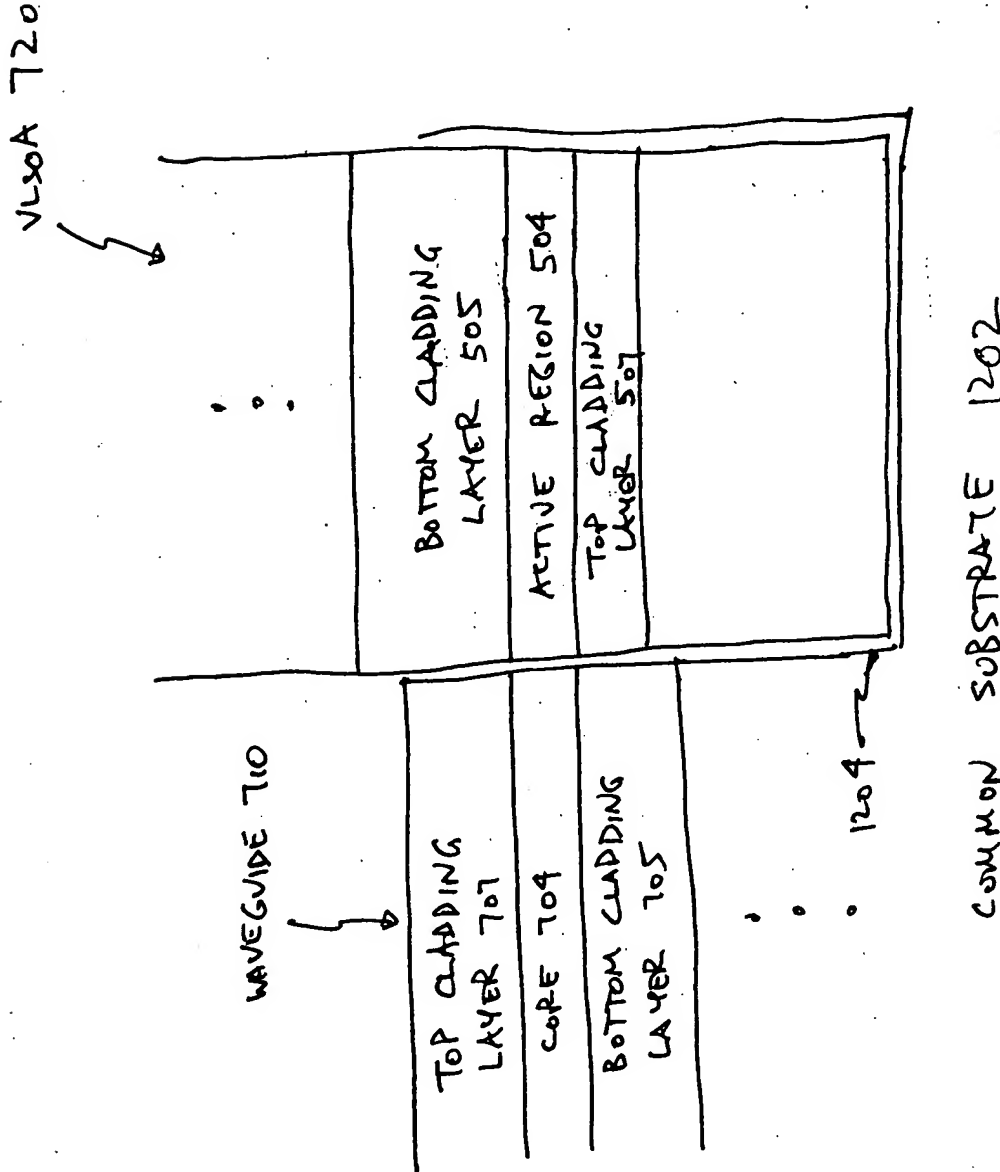 VLSOA 720
WAVEGUIDE 710
TOP CLADDING
LAYER 707
CORE 704
BOTTOM CLADDING
LAYER 705
BOTTOM CLADDING
LAYER 505
ACTIVE REGION 504
TOP CLADDING
LAYER 507
1204
COMMON SUBSTRATE 1202